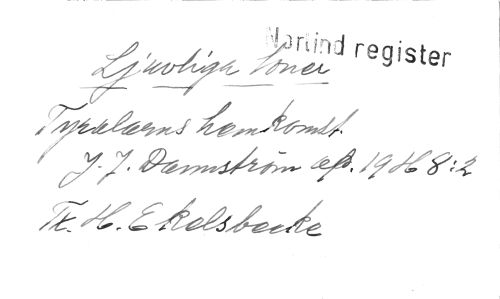 Nartind register
Ljuvliga toner
Tyrolarens hemkomst.
J. J. Dannström op. 19 H 8:2
Tx. H. Ekelsbecke